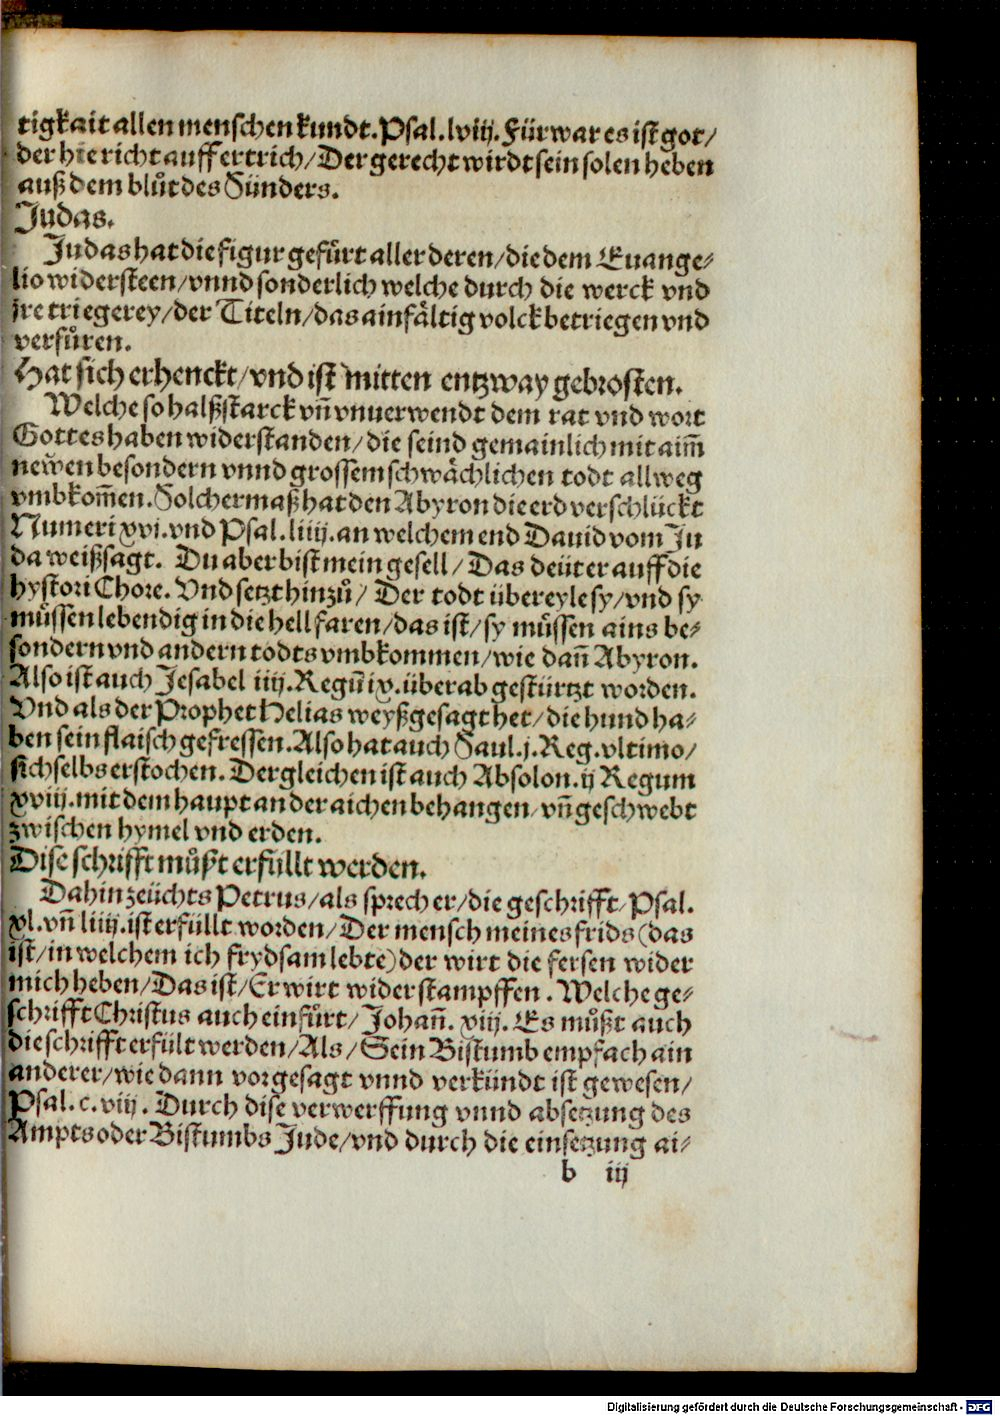 tigkait allen menschen kundt. Psal. lviij. Fürwar es ist got/
der hie richt auff ertrich/ Der gerecht wirdt sein solen heben
auß dem blůt des Sünders.
Judas.
Judas hat die figur gefůrt aller deren/ die dem Euange⸗
lio widersteen/ vnnd sonderlich welche durch die werck vnd
jre triegerey/ der Titeln/ das ainfältig volck betriegen vnd
verfůren.
Hat sich erhenckt/ vnd ist mitten entzway gebrosten.
Welche so halßstarck vñ vnuerwendt dem rat vnd wort
Gottes haben widerstanden/ die seind gemainlich mit aim̃
newen besondern vnnd grossem schwächlichen todt allweg
vmbkom̃en. Solchermaß hat den Abyron die erd verschlückt
Numeri xvi. vnd Psal. liiij. an welchem end Dauid vom Ju
da weißsagt. Du aber bist mein gesell/ Das deüt er auff die
hystori Chore. Vnd setzt hinzů/ Der todt übereyle sy/ vnd sy
můssen lebendig in die hell faren/ das ist/ sy můssen ains be⸗
sondern vnd andern todts vmbkommen/ wie dañ Abyron.
Also ist auch Jesabel iiij. Regũ ix. überab gestürtzt worden.
Vnd als der Prophet Helias weyßgesagt het/ die hund ha⸗
ben sein flaisch gefressen. Also hat auch Saul. j. Reg. vltimo/
sich selbs erstochen. Dergleichen ist auch Absolon. ij Regum
xviij. mit dem haupt an der aichen behangen/ vñ geschwebt
zwischen hymel vnd erden.
Dise schrifft můßt erfüllt werden.
Dahin zeüchts Petrus/ als sprech er/ die geschrifft/ Psal.
xl. vñ liiij. ist erfüllt worden/ Der mensch meines frids (das
ist/ in welchem ich frydsam lebte) der wirt die fersen wider
mich heben/ Das ist/ Er wirt widerstampffen. Welche ge⸗
schrifft Christus auch einfůrt/ Johañ. xiij. Es můßt auch
die schrifft erfült werden/ Als/ Sein Bistumb empfach ain
anderer/ wie dann vorgesagt vnnd verkündt ist gewesen/
Psal. c. viij. Durch dise verwerffung vnnd absetzung des
Ampts oder Bistumbs Jude/ vnd durch die einsetzung ai⸗
b iij
Digitalisierung gefördert durch die Deutsche Forschungsgemeinschaft - DFG